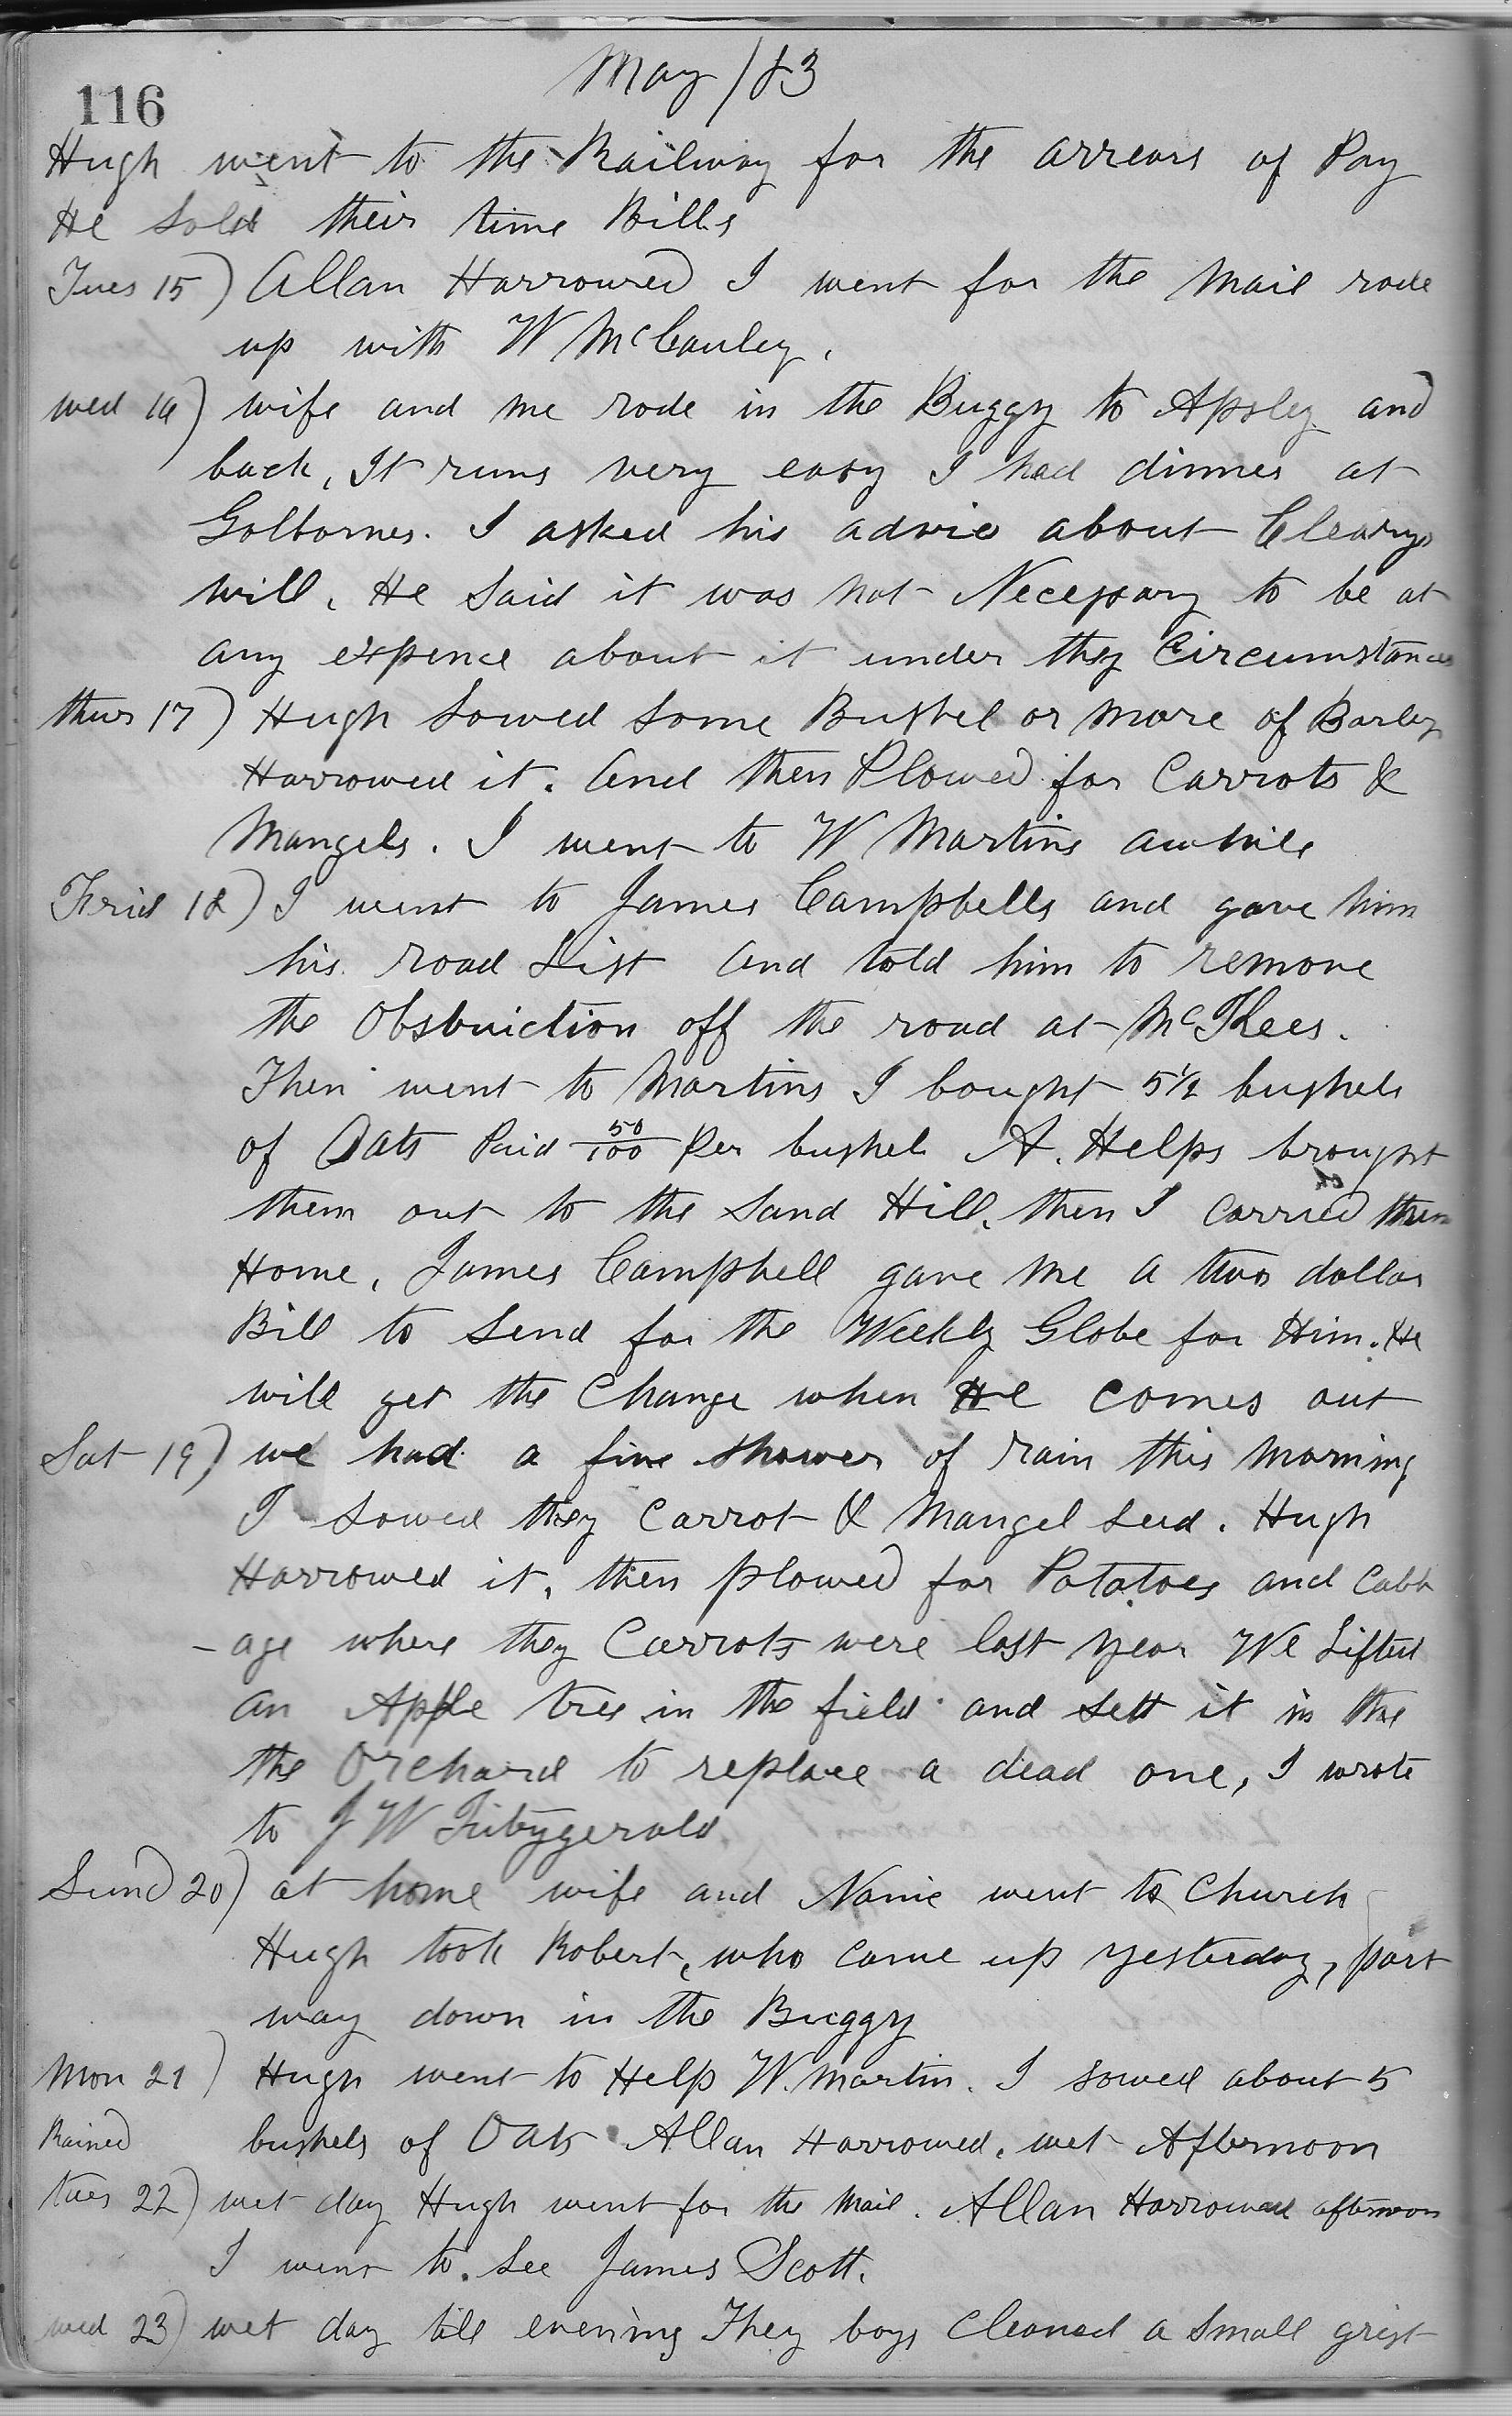 116
May /83
Hugh went to the Railway for the arrears of Pay
He Sold their time Bills
Tues 15) Allan Harrowed I went for the Mail rode
up with W McCauley.
wed 16) wife and me rode in the Buggy to Apsley and
back, It runs very easy I had dinner at
Golbornes. I asked his advice about Clearys
will, He Said it was not Necessary to be at
any expence about it under they Circumstances
thurs 17) Hugh Sowed Some Bushel or more of Barley
Harrowed it. And then Plowed for Carrots &
Mangels. I went to W Martins awhile
Frid 18) I went to James Campbells and gave him
his road List and told him to remove
the Obstruction off the road at McFhees.
Then went to Martins I bought 5 1/2 bushels
of Oats Paid 50/100 Per bushel A. Helps brought
them out to the Sand Hill, then I carried them
Home, James Campbell gave me a two dollar
Bill to Send for the Weekly Globe for Him. He
will get the Change when He comes out
Sat 19) we had a fine shower of rain this morning
I sowed they Carrot & Mangel Seed. Hugh
Harrowed it, then plowed for Potatoes and Cabb
-age where they Carrots were last year We Lifted
an Apple tree in the field and sett it in the
the Orchard to replace a dead one, I wrote
to J W Fitzygerald
Sund 20) at home wife and Nanie went to Church
Hugh took Robert, who came up yesterday, part
way down in the Buggy
Mon 21) Hugh went to Help W. Martin. I sowed about 5
Rained bushels of Oats Allan Harrowed, wet Afternoon
tues 22) wet day Hugh went for the Mail. Allan Harrowed afternoon
I went to. See James Scott.
wed 23) wet day till evening They boys Cleaned a Small grist